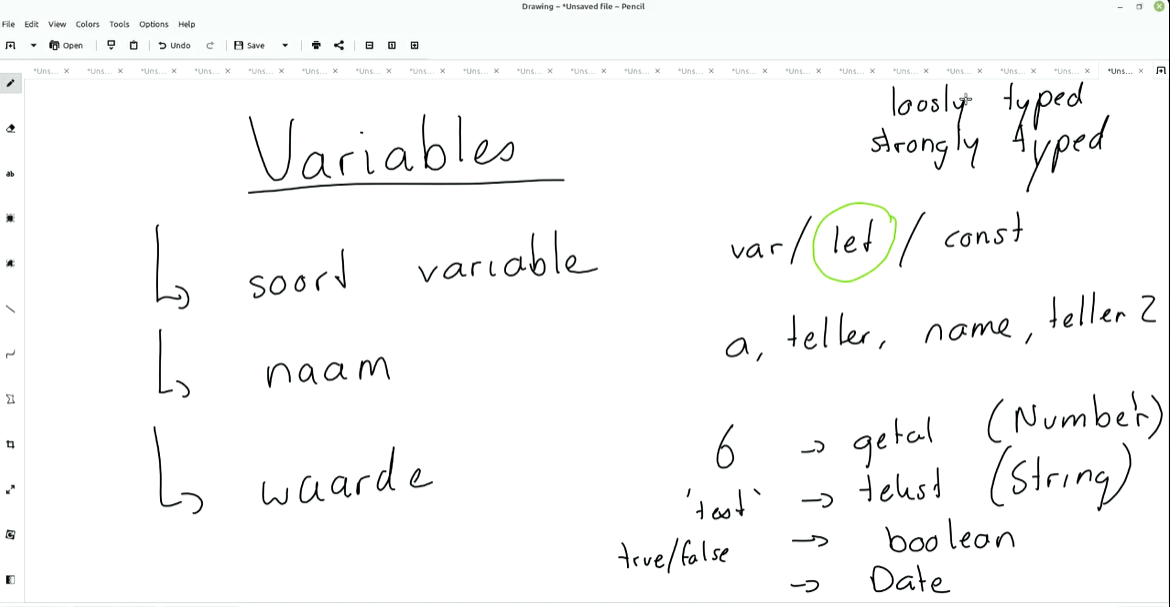 Drawing – *Unsaved file – Pencil
File Edit View Colors Tools Options Help
Open Undo Save
*Uns... *Uns... *Uns... *Uns... *Uns... *Uns... *Uns... *Uns... *Uns... *Uns... *Uns... *Uns... *Uns... *Uns... *Uns... *Uns... *Uns... *Uns... *Uns... *Uns... *Uns...
ab
loosly typed
strongly typed
Variables
soord variable var/ let / const
naam a, teller, name, teller 2
waarde
6 → getal (Number)
'test' → tekst (String)
true/false → boolean
→ Date